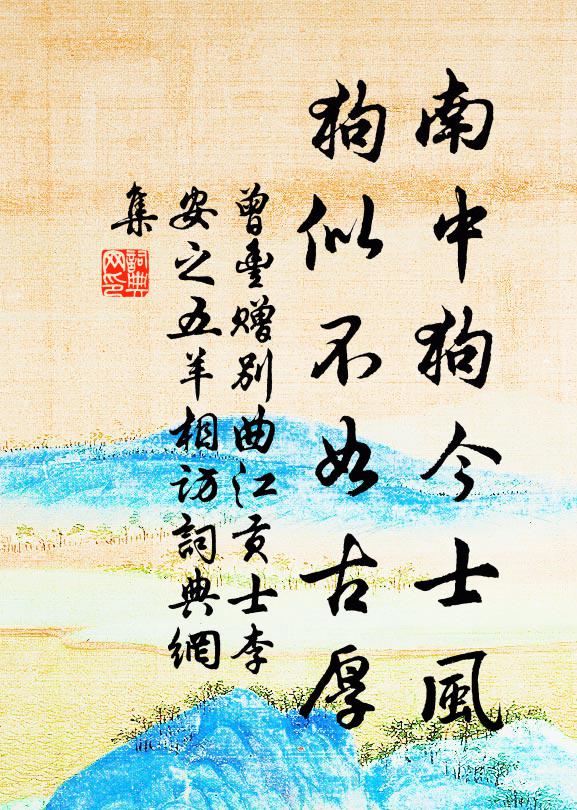 南中狗今士風
狗似不如古厚
曾豐贈別曲江貢士李
安之五羊相訪詞典網
集
詞典
网印